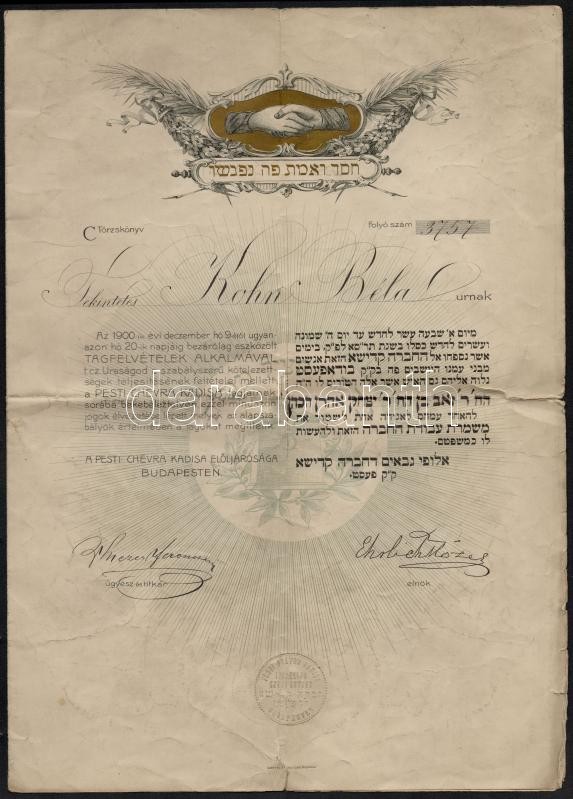 חסד ואמת פה נפגשו
C Törzskönyv
Folyó szám 3757
Tekintetes Kohn Béla urnak
Az 1900-ik évi deczember hó 9-étől ugyan-
azon hó 20-ik napjáig bezárólag eszközölt
TAGFELVÉTELEK ALKALMÁVAL
t. cz. Uraságod a szabályszerű kötelezett-
ségek teljesítésének feltétele mellett
a PESTI CHEVRA KADISA tagjainak
sorába bekebeleztetett
jogok élvezetére
A PESTI CHEVRA KADISA ELŐLJÁRÓSÁGA
BUDAPESTEN.
מיום א' שבעה עשר לחדש עד יום ה' שמונה
ועשרים לחדש כסלו בשנת תרס"א לפ"ק, בימים
אשר נספחו אל החברה קדישא הזאת אנשים
מבני עמנו היושבים פה בק"ק בודאפעסט
נלוה אליהם גם האיש
להאחד עמהם לאגודה אחת לשמור את
משמרת עבודת החברה הזאת ולהעשות
לו כמשפטם.
אלופי גבאים דחברה קדישא
ק"ק פעסט.
ügyész-titkár
Ehrlich Mózes
elnök
darabanth.com